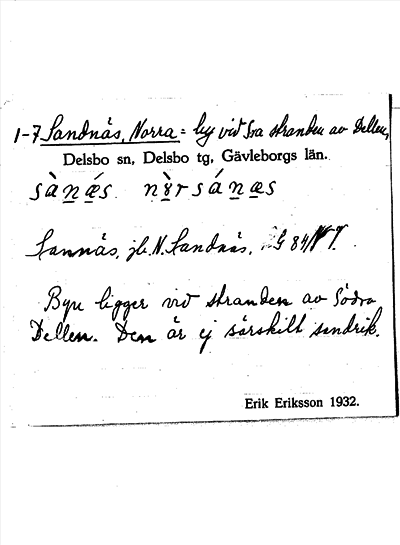 1-7 Sandnäs, Norra = by vid Sra stranden av Dellen,
Delsbo sn, Delsbo tg, Gävleborgs län.
sànǽs nɤ̀rsánæs
Sannäs, jb. N. Sandnäs, G 84
Byn ligger vid stranden av Södra
Dellen. Den är ej särskilt sandrik.
Erik Eriksson 1932.